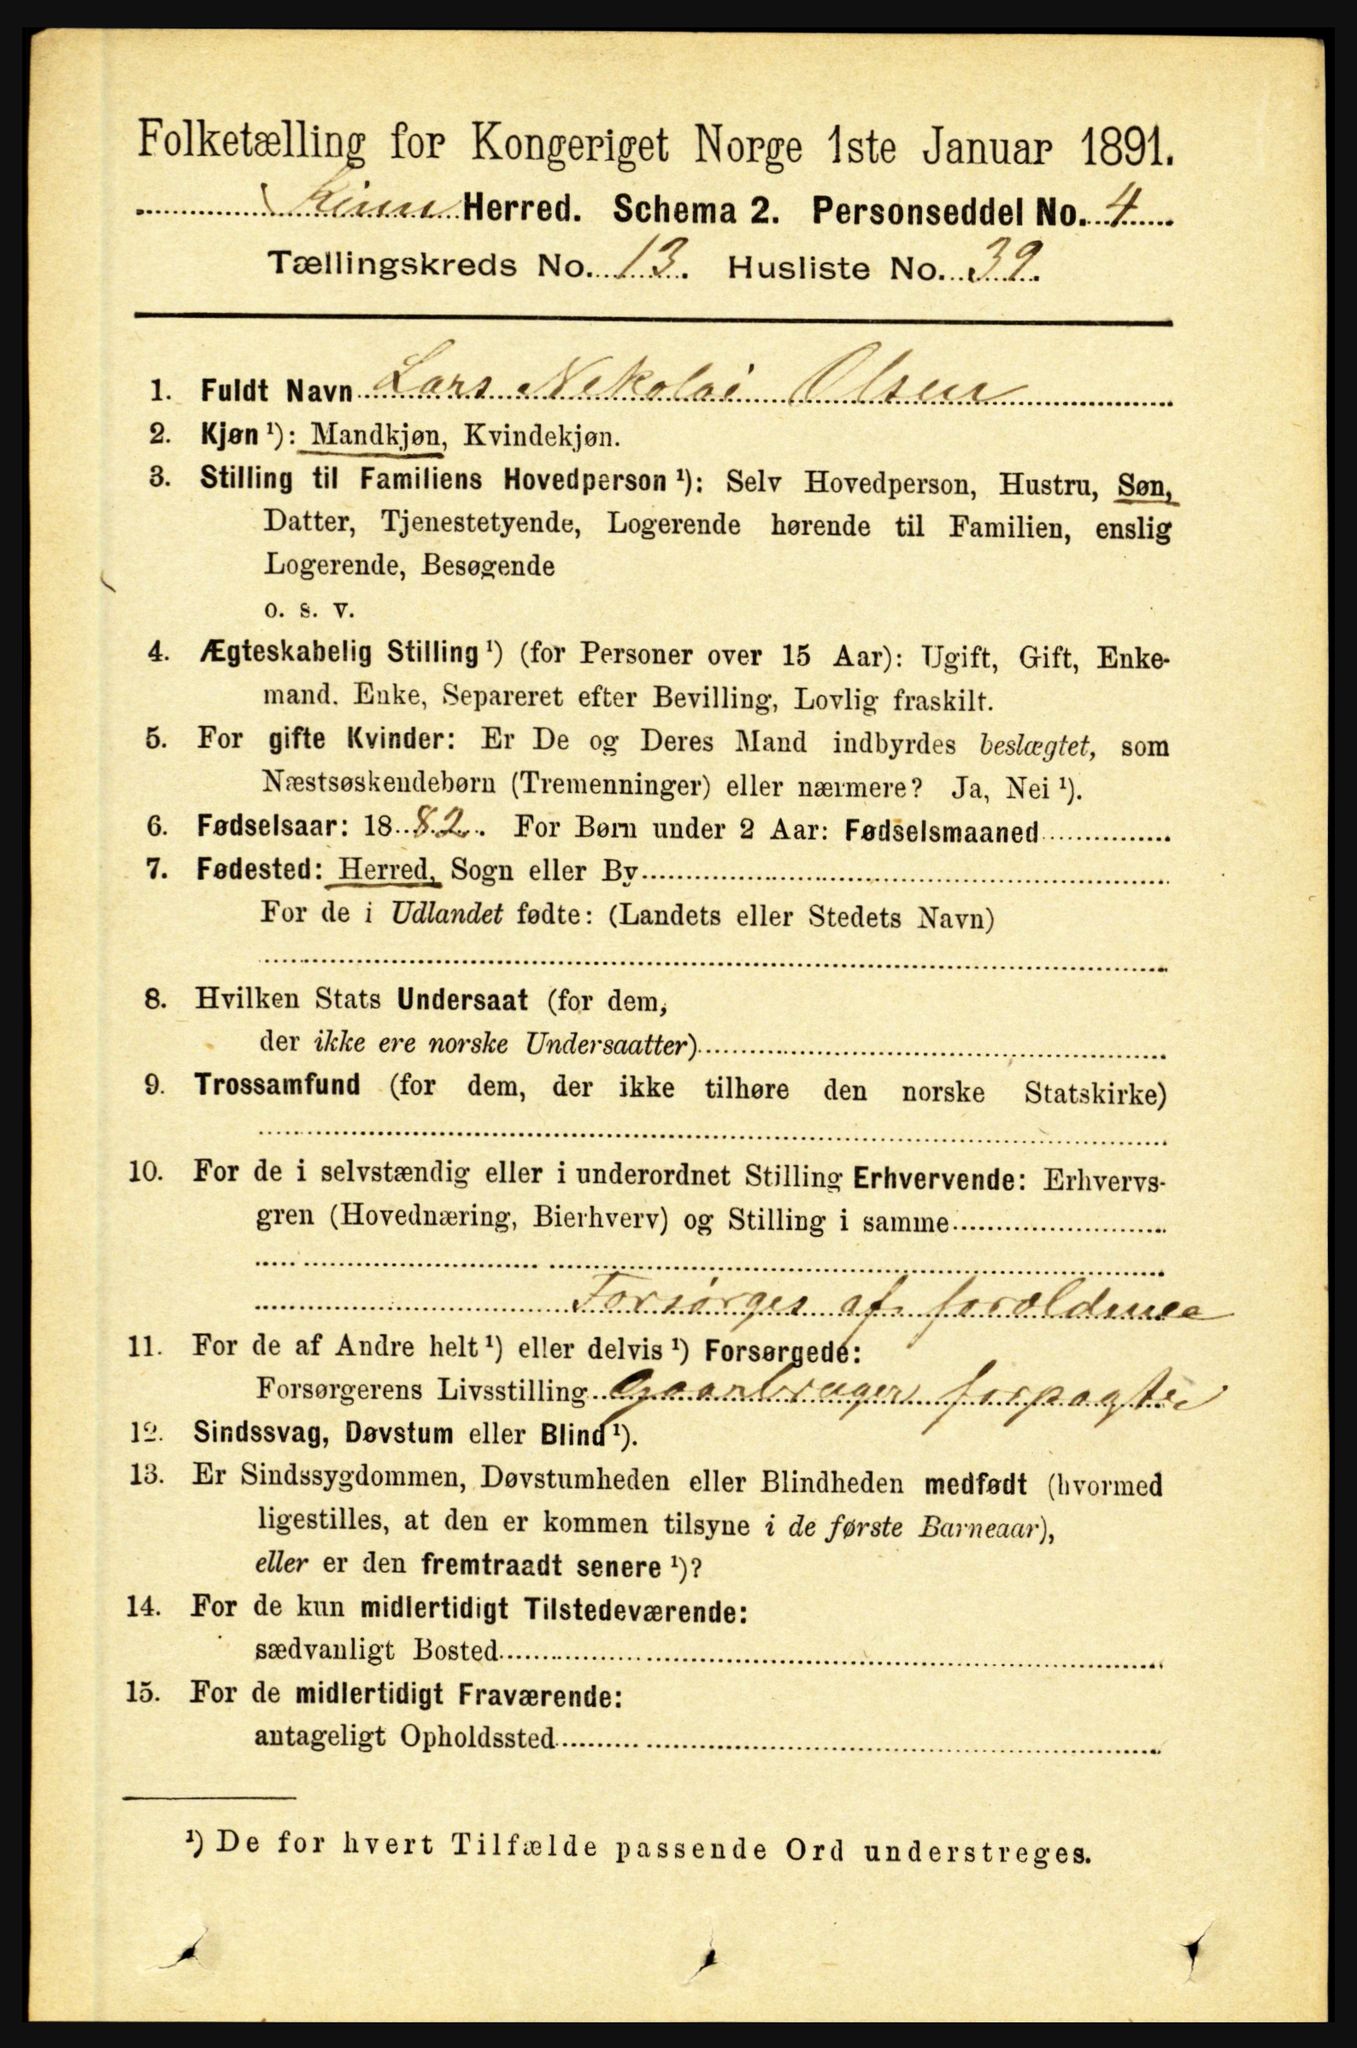 Folketælling for Kongeriget Norge 1ste Januar 1891.
Kinn Herred. Schema 2. Personseddel No. 4
Tællingskreds No. 13. Husliste No. 39.
1. Fuldt Navn Lars Nekolai Olsen
2. Kjøn ¹): Mandkjøn, Kvindekjøn.
3. Stilling til Familiens Hovedperson ¹): Selv Hovedperson, Hustru, Søn,
Datter, Tjenestetyende, Logerende hørende til Familien, enslig
Logerende, Besøgende
o. s. v.
4. Ægteskabelig Stilling ¹) (for Personer over 15 Aar): Ugift, Gift, Enke-
mand. Enke, Separeret efter Bevilling, Lovlig fraskilt.
5. For gifte Kvinder: Er De og Deres Mand indbyrdes beslægtet, som
Næstsøskendebørn (Tremenninger) eller nærmere? Ja, Nei ¹).
6. Fødselsaar: 18 82. For Børn under 2 Aar: Fødselsmaaned
7. Fødested: Herred, Sogn eller By
For de i Udlandet fødte: (Landets eller Stedets Navn)
8. Hvilken Stats Undersaat (for dem,
der ikke ere norske Undersaatter)
9. Trossamfund (for dem, der ikke tilhøre den norske Statskirke)
10. For de i selvstændig eller i underordnet Stilling Erhvervende: Erhvervs-
gren (Hovednæring, Bierhverv) og Stilling i samme
Forsørges af foraldrene
11. For de af Andre helt ¹) eller delvis ¹) Forsørgede:
Forsørgerens Livsstilling Gaarbruger forpagter
12. Sindssvag, Døvstum eller Blind ¹).
13. Er Sindssygdommen, Døvstumheden eller Blindheden medfødt (hvormed
ligestilles, at den er kommen tilsyne i de første Barneaar),
eller er den fremtraadt senere ¹)?
14. For de kun midlertidigt Tilstedeværende:
sædvanligt Bosted
15. For de midlertidigt Fraværende:
antageligt Opholdssted
¹) De for hvert Tilfælde passende Ord understreges.